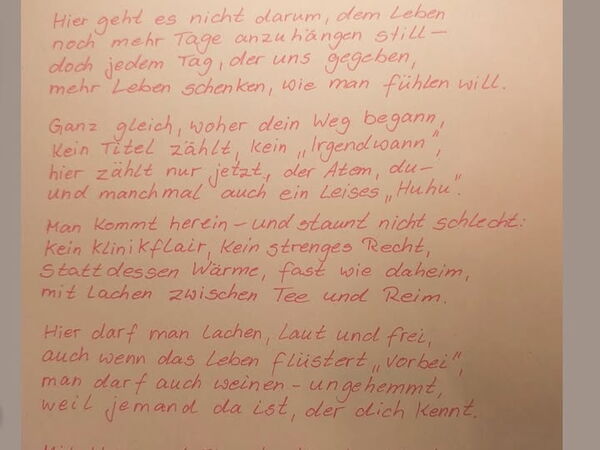 Hier geht es nicht darum, dem Leben
noch mehr Tage anzuhängen still –
doch jedem Tag, der uns gegeben,
mehr Leben schenken, wie man fühlen will.
Ganz gleich, woher dein Weg begann,
kein Titel zählt, kein „Irgendwann",
hier zählt nur jetzt, der Atem, du –
und manchmal auch ein leises „Huhu".
Man kommt herein – und staunt nicht schlecht:
kein Klinikflair, kein strenges Recht,
Stattdessen Wärme, fast wie daheim,
mit Lachen zwischen Tee und Reim.
Hier darf man lachen, laut und frei,
auch wenn das Leben flüstert „vorbei",
man darf auch weinen – ungehemmt,
weil jemand da ist, der dich kennt.